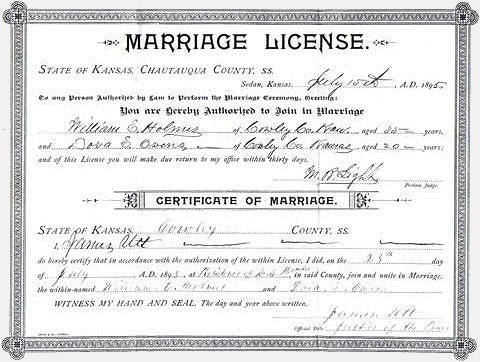 MARRIAGE LICENSE.
STATE OF KANSAS, CHAUTAUQUA COUNTY, SS.
Sedan, Kansas, July 10th, A.D. 1895
To any Person Authorized by Law to Perform the Marriage Ceremony, Greeting:
You are Hereby Authorized to Join in Marriage
William E. Holmes of Cowley Co. Kans. aged 35 years,
and Dova E. Owens of Cowley Co. Kansas aged 20 years,
and of this License you will make due return to my office within thirty days.
M. B. Light
Probate Judge.
CERTIFICATE OF MARRIAGE.
STATE OF KANSAS, Cowley COUNTY, SS.
I, James Utt
do hereby certify that in accordance with the authorization of the within License, I did, on the day
of July A.D. 1895, at Residence of in said County, join and unite in Marriage,
the within-named William E. Holmes and Dova E. Owens
WITNESS MY HAND AND SEAL, The day and year above written.
James Utt
Official Title Justice of the Peace